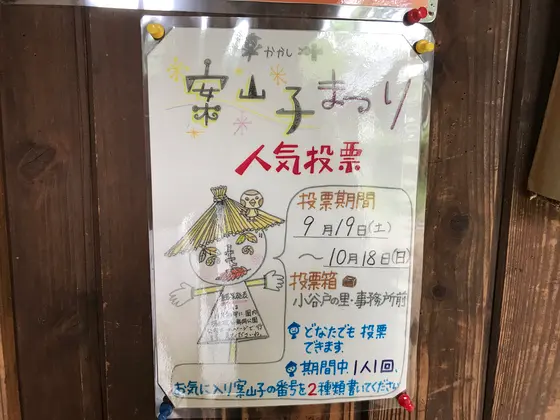 かかし
案山子まつり
人気投票
投票期間
9月19日(土)
～10月18日(日)
投票箱
小谷戸の里・事務所前
どなたでも投票
できます。
期間中1人1回、
お気に入り案山子の番号を2種類書いてください